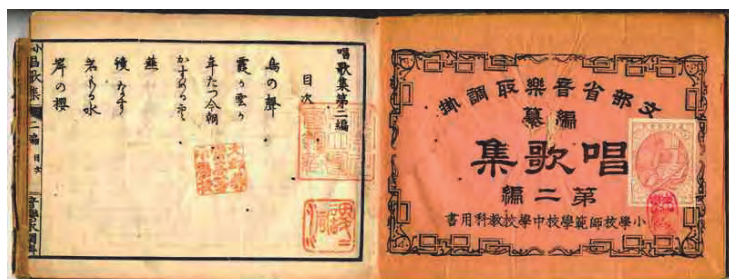 文部省音樂取調掛
編纂
唱歌集
第二編
小學校師範學校中學校教科用書
唱歌集第二編
目次
鳥の聲
霞か雲か
年たつ今朝
かすめる空
燕
鏡なす
岩もる水
岸の櫻
唱歌集 二編 目次